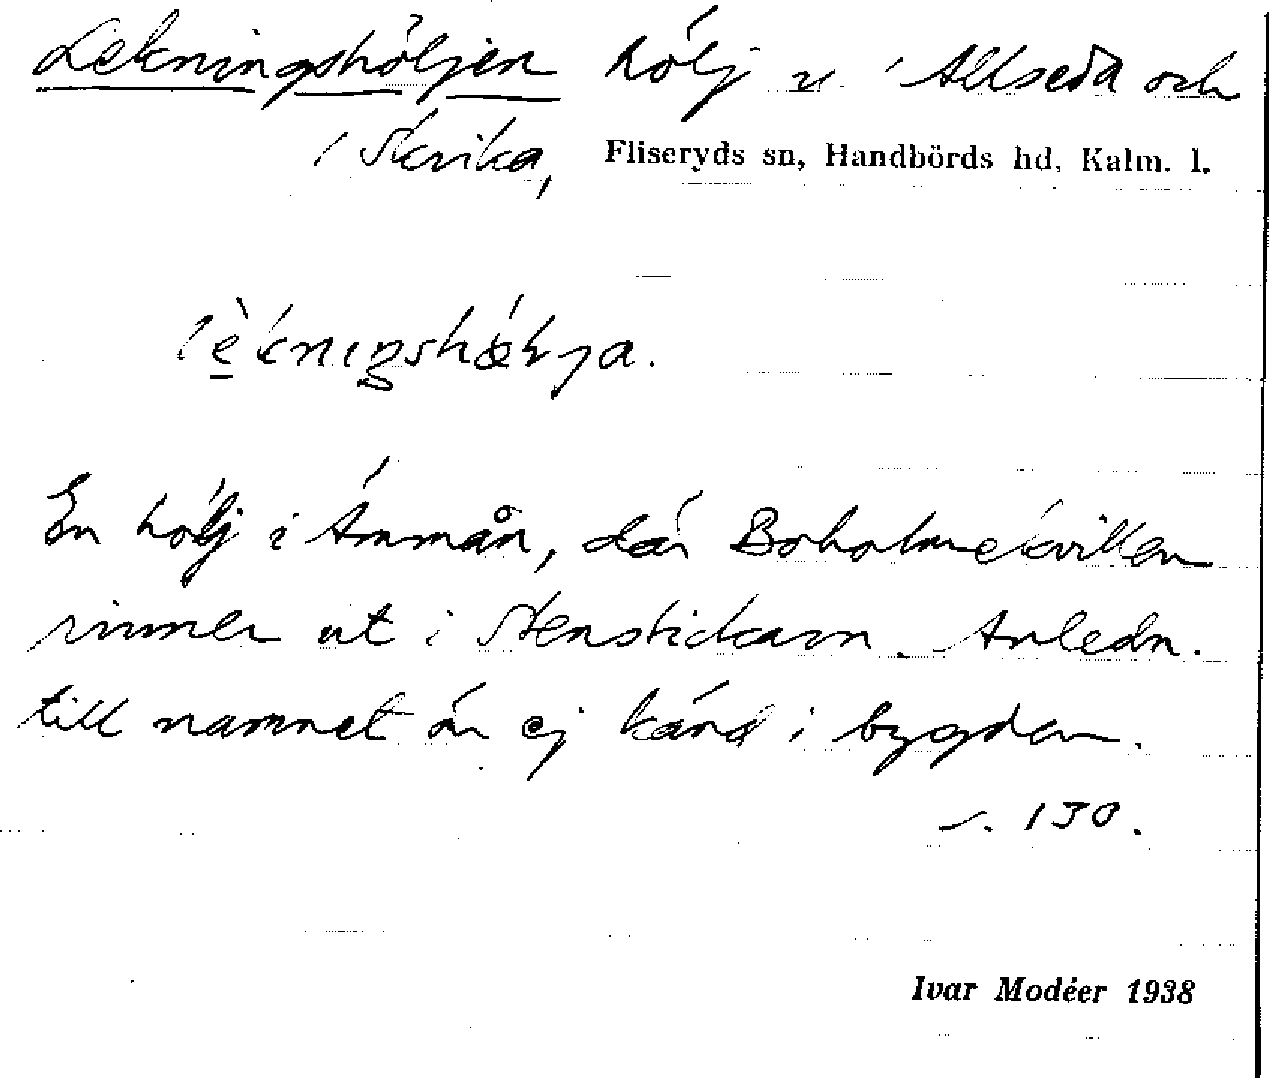 Lekningshöljen hölj u. i Allseda och
i Skrika, Fliseryds sn, Handbörds hd, Kalm. l.
En hölj i Ämmån, där Boholmekvillen
rinner ut i Stenstickarn. Anledn.
till namnet är ej känd i bygden.
s. 130.
Ivar Modéer 1938